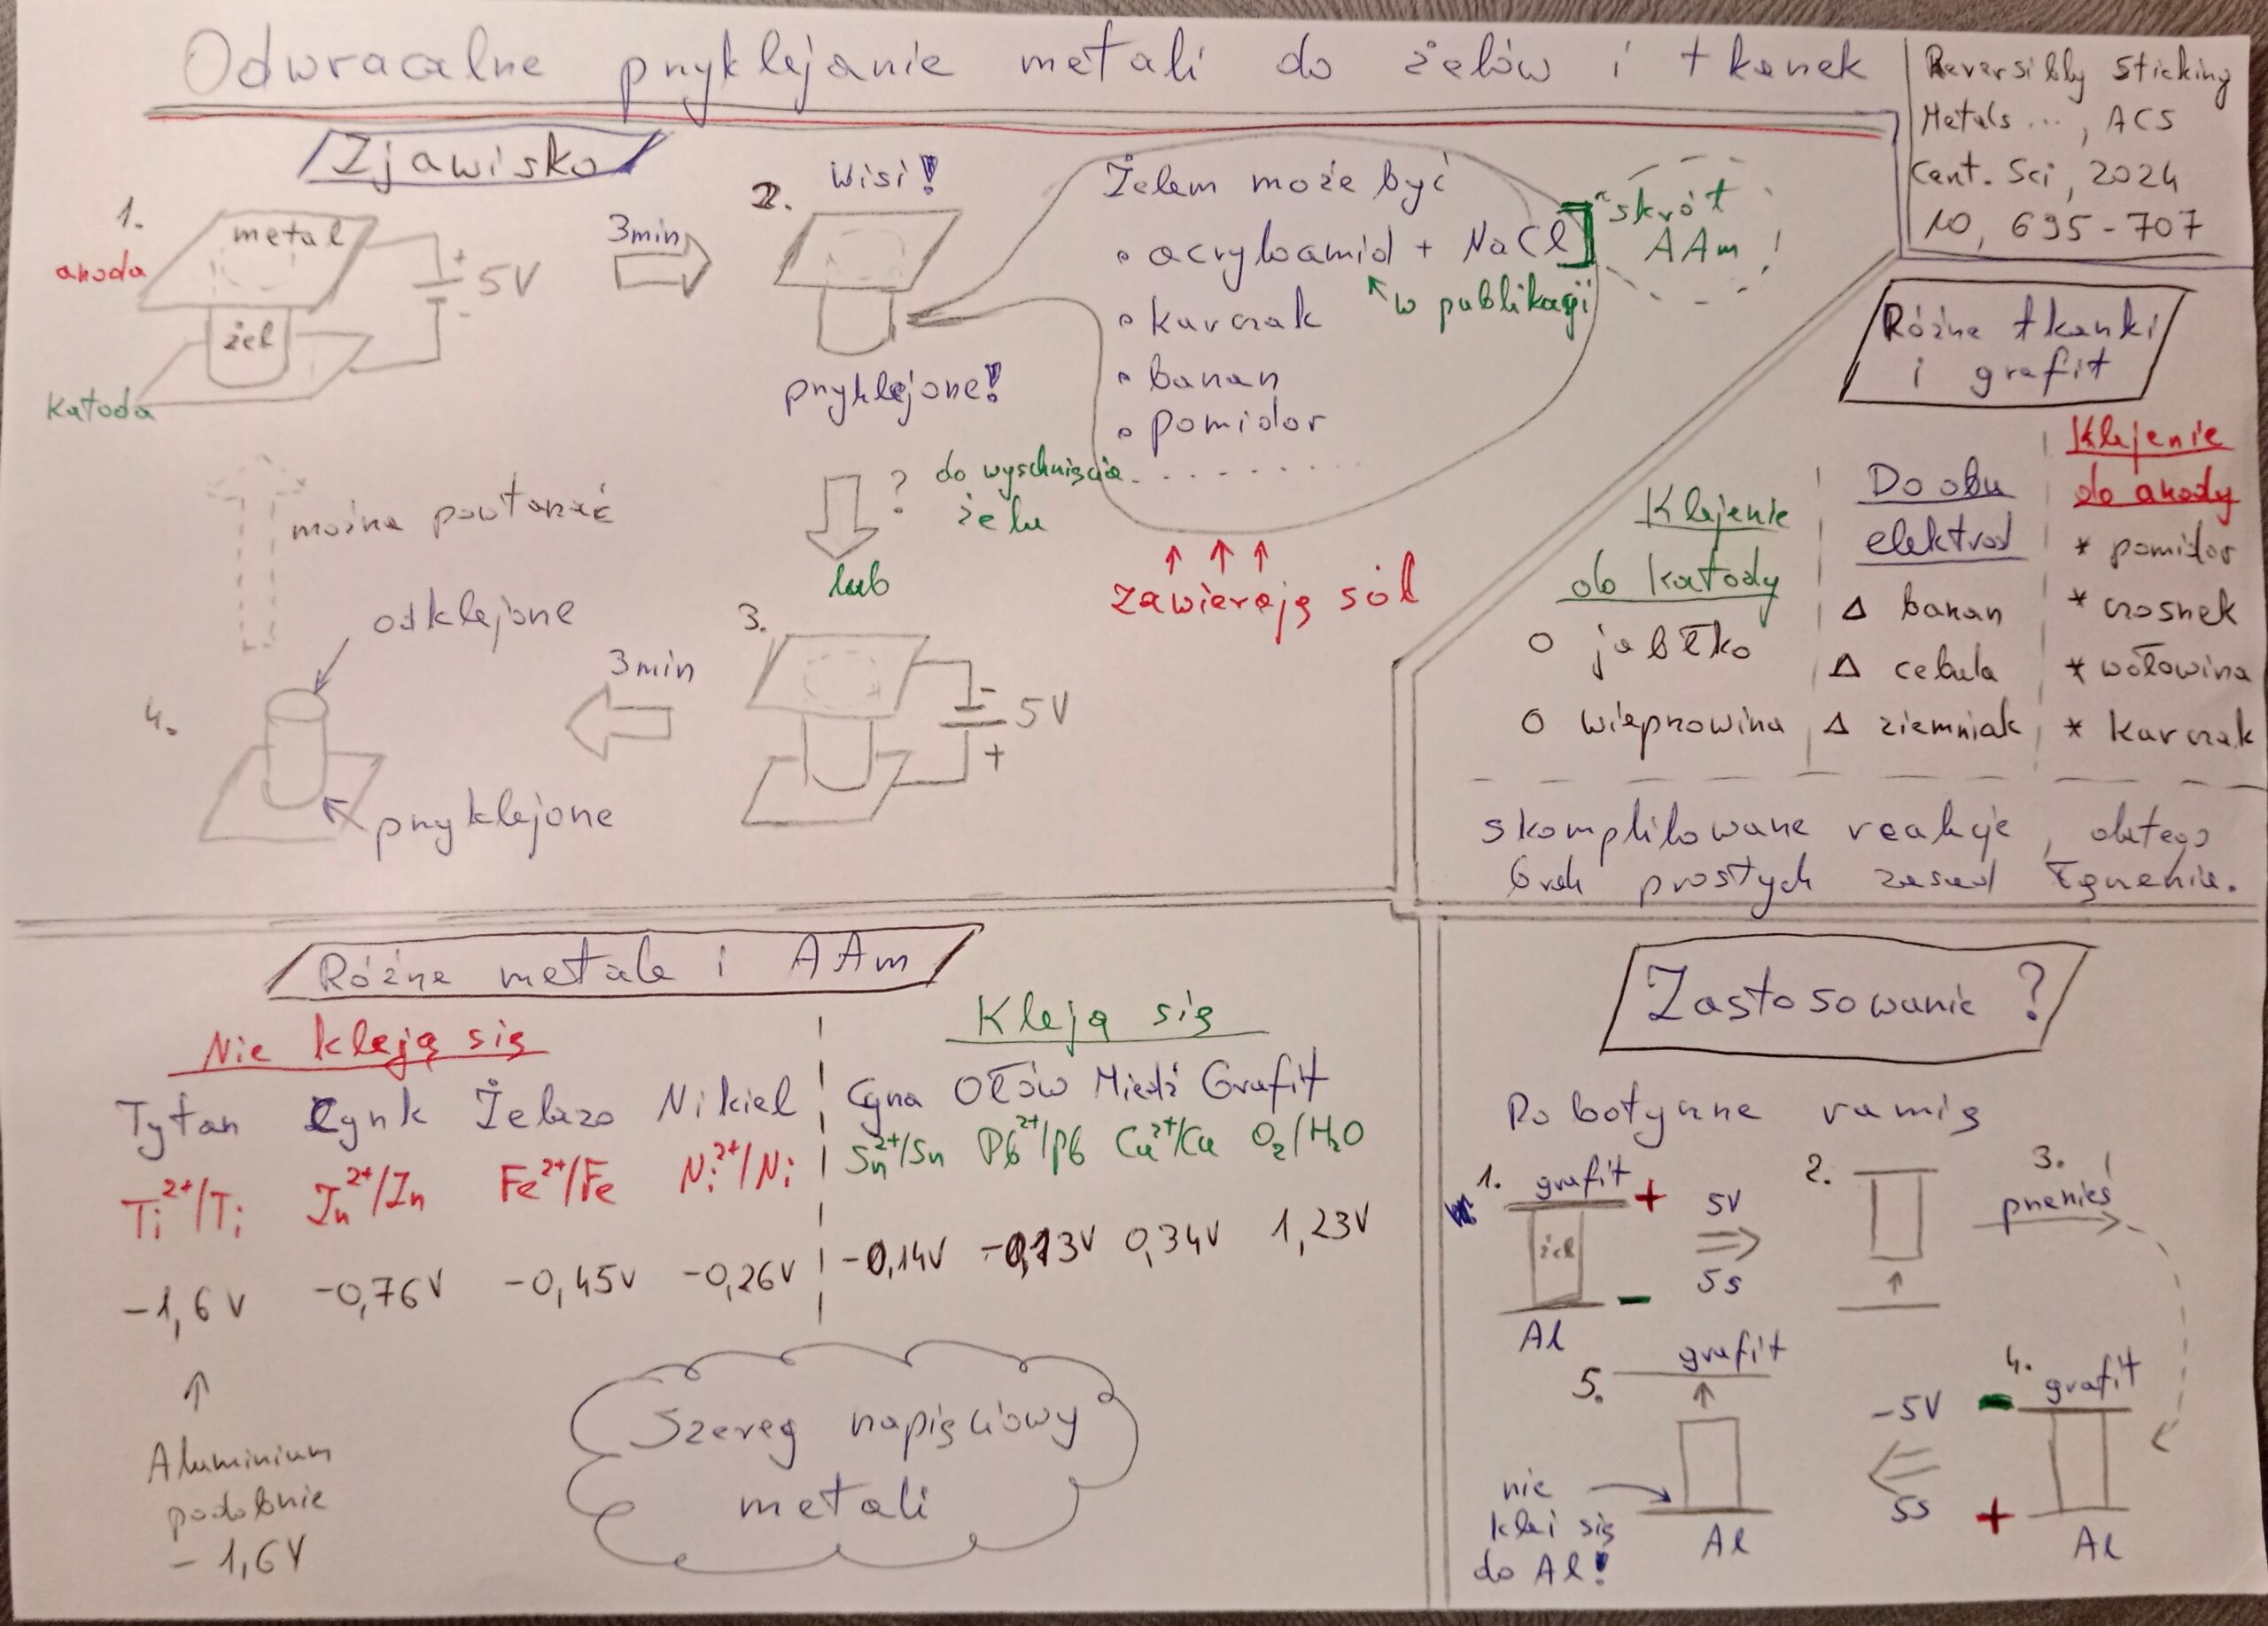 Odwracalne przyklejanie metali do żelów i tkanek
Reversibly Sticking
Metals ..., ACS
Cent. Sci, 2024
10, 695-707
Zjawisko
1.
metal
anoda
żel
katoda
+
-
5V
3min
2.
Wisi!
przyklejone!
Żelem może być
• acryloamid + NaCl
"skrót
AAm !
↖ w publikacji
• kurczak
• banan
• pomidor
. . . . . . . .
↑ ↑ ↑
zawierają sól
? do wyschnięcia
żelu
lub
3.
-
5V
+
3min
można powtarzać
4.
odklejone
przyklejone
Różne tkanki
i grafit
Klejenie
do katody
o jabłko
o wieprzowina
Do obu
elektrod
Δ banan
Δ cebula
Δ ziemniak
Klejenie
do anody
* pomidor
* czosnek
* wołowina
* kurczak
skomplikowane reakcje, dlatego
brak prostych zasad łączenia.
Różne metale i AAm
Nie kleją się
Kleją się
Tytan Cynk Żelazo Nikiel Cyna Ołów Miedź Grafit
Ti²⁺/Ti Zn²⁺/Zn Fe²⁺/Fe Ni²⁺/Ni Sn²⁺/Sn Pb²⁺/Pb Cu²⁺/Cu O₂/H₂O
-1,6V -0,76V -0,45V -0,26V -0,14V -0,13V 0,34V 1,23V
↑
Aluminium
podobnie
- 1,6V
Szereg napięciowy
metali
Zastosowanie?
Robotyczne ramię
1. grafit +
żel
-
Al
5V
5s
2.
3.
przenieś
4. grafit
-
+
Al
-5V
5s
5. grafit
nie
klei się
do Al!
Al